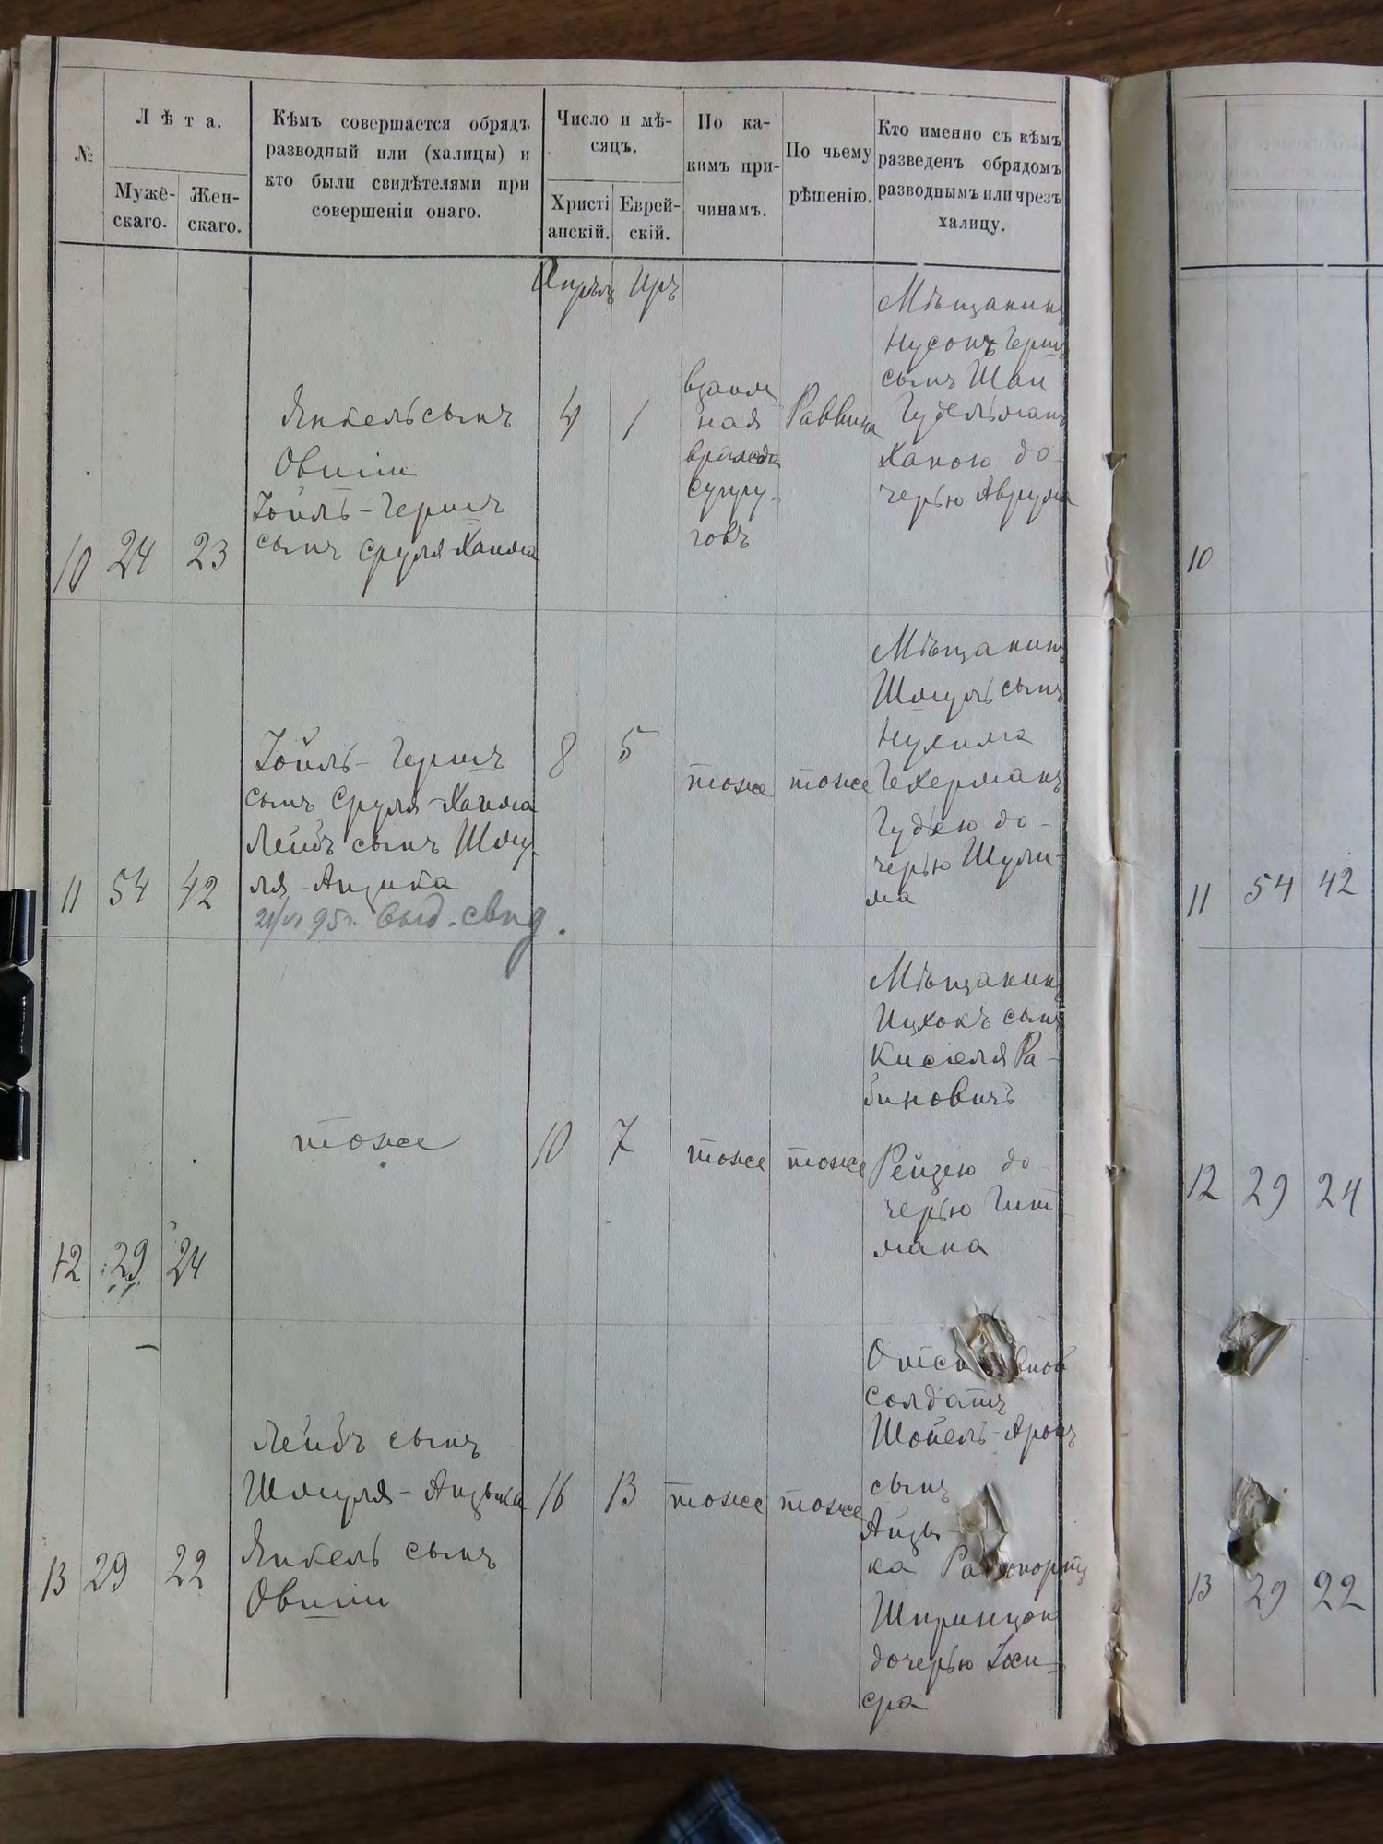 №
Лѣта.
Мужескаго.
Женскаго.
Кѣмъ совершается обрядъ
разводный или (халицы) и
кто были свидѣтелями при
совершеніи онаго.
Число и мѣ-
сяцъ.
Христі
анскій.
Еврей-
скій.
По ка-
кимъ при-
чинамъ.
По чьему
рѣшенію.
Кто именно съ кѣмъ
разведенъ обрядомъ
разводнымъ или чрезъ
халицу.
Апрѣль Иръ
10 24 23
Янкель сынъ
Овшіи
Іойль-Гершъ
сынъ Сруля Хаима
4 1
взаим
ная
вражда
супру-
говъ
Раввина
Мѣщанинъ
Нусонъ Гершъ
сынъ Шаи
Гудельманъ
Ханою до-
черью Аврума
10
11 54 42
Іойль-Гершъ
сынъ Сруля-Хаима
Лейбъ сынъ Шму-
ля-Айзика
21/VI 95г. выд. свид.
8 5
тоже тоже
Мѣщанинъ
Шмуль сынъ
Нухима
Чехерманъ
Гудею до-
черью Шули-
ма
11 54 42
12 29 24
тоже
10 7
тоже тоже
Мѣщанинъ
Ицхокъ сынъ
Киселя Ра-
биновичъ
Рейзею до
черью Гит
мана
12 29 24
13 29 22
Лейбъ сынъ
Шмуля-Айзика
Янкель сынъ
Овшіи
16 13
тоже тоже
солдатъ
Шойель-Аронъ
сынъ
Айзи
ка
Ширинцою
дочерью Іоси-
фа
13 29 22